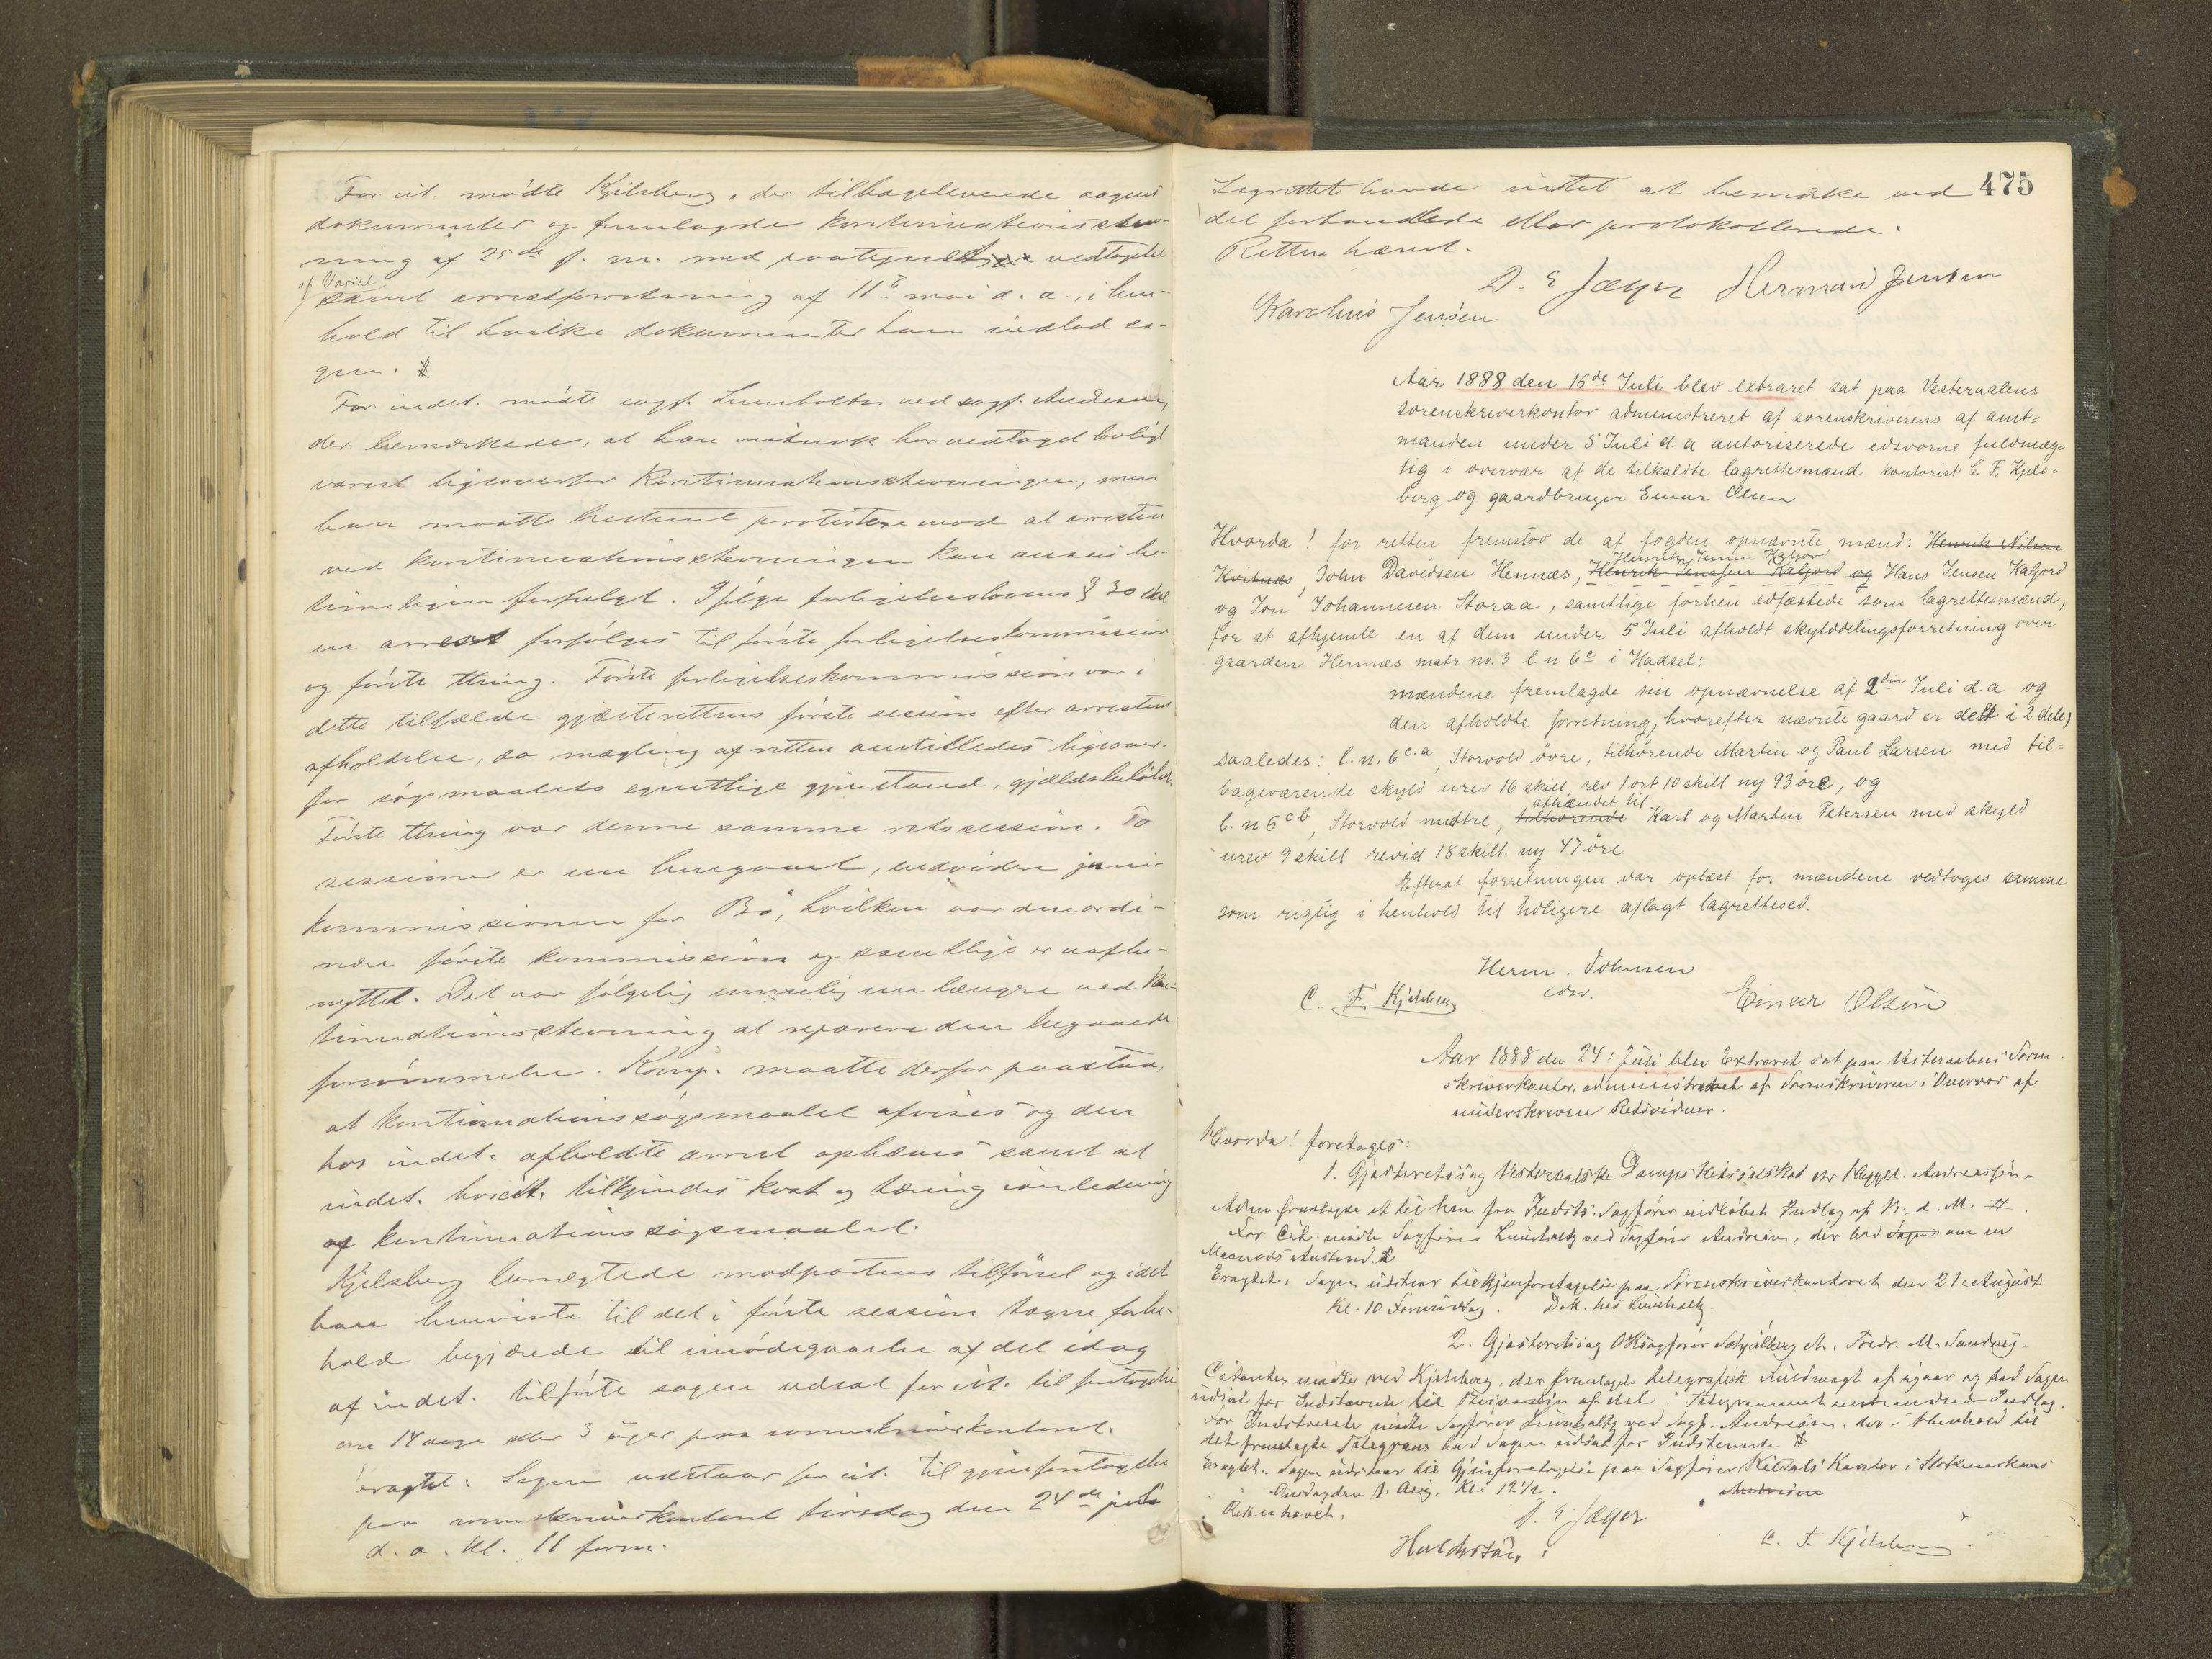 For cit. mødte Kjelsberg, der tilbageleverede sagens
dokumenter og fremlagde kontinuationsstev-
ning af 25de f. m. med paategnet vedtagelse
af Varsel
samt arrestforretning af 11te mai d. a., i hen-
hold til hvilke dokumenter han indlod sa-
gen. #
For indst. mødte sagf. Lumholtz ved sagf. Andresen,
der bemærkede, at han vistnok har vedtaget lovligt
varsel ligeoverfor kontinuationsstevningen, men
han maatte bestemt protestere mod at arresten
ved kontinuationsstevningen kan ansees be-
timeligen forfulgt. Ifølge forligelseslovens § 30 skal
en arrest forfølges til første forligelseskommission
og første thing. Første forligelseskommission var i
dette tilfælde gjesterettens første session efter arrestens
afholdelse, da mægling af retten anstilledes ligeover-
for søgsmaalets egentlige gjenstand, gjældsbeløbet.
Første thing var denne samme retssession. To
sessioner er nu hengaaet, endvidere juni-
kommissionen for Bø, hvilken var den ordi-
nære første kommission og samtlige er uafbe-
nyttet. Det var følgelig umulig nu længere ved kon-
tinuationsstevning at reparere den begaaede
forsømmelse. Komp. maatte derfor paastaa,
at kontinuationssøgsmaalet afvises og den
hos indst. afholdte arrest ophæves samt at
indst. hos cit. tilkjendes kost og tæring i anledning
af kontinuationssøgsmaalet.
Kjelsberg benegtede modpartens tilførsel og idet
han henviste til det i første session tagne forbe-
hold begjærede til imødegaaelse af det idag
af indst. tilførte sagen udsat for cit. til foretagelse
om 14 dage eller 3 uger paa sorenskriverkontoret.
Eragtet: Sagen udstaar for cit. til gjenforetagelse
paa sorenskriverkontoret tirsdag den 24de juli
d. a. kl. 11 form.
475
Lagrettet havde intet at bemærke ved
det forhandlede eller protokollerede.
Retten hævet.
D. E Jæger Herman Jensen
Karolius Jensen
Aar 1888 den 16de Juli blev extraret sat paa Vesteraalens
sorenskriverkontor administreret af sorenskriverens af amt=
manden under 5 Juli d. a autoriserede edsvorne fuldmæg=
tig i overvær af de tilkaldte lagrettesmænd kontorist C. F. Kjels=
berg og gaardbruger Einar Olsen
Hvorda! for retten fremstod de af fogden opnævnte mænd: Henrik Nilsen
Henrik Jensen Kaljord
Kvitnæs, John Davidsen Hennæs, Henrik Jenssen Kaljord og Hans Jensen Kaljord
og Jon Johannesen Storaa, samtlige forhen edfæstede som lagrettesmænd,
for at afhjemle en af dem under 5 Juli afholdt skylddelingsforretning over
gaarden Hennæs matr no. 3 l. n 6c i Hadsel:
mændene fremlagde sin opnævnelse af 2den Juli d. a og
den afholdte forretning, hvorefter nævnte gaard er delt i 2 dele,
saaledes: l. n. 6c.a, Storvold øvre, tilhørende Martin og Paul Larsen med til=
bageværende skyld urev 16 skill, rev 1 ort 10 skill ny 93 øre, og
afhændet til
l. n 6cb, Storvold nedre, tilhørende Karl og Marten Petersen med skyld
urev 9 skill revid 18 skill. ny 47 øre
Efterat forretningen var oplæst for mændene vedtoges samme
som rigtig i henhold til tidligere aflagt lagrettesed.
Herm. Johnsen
edsv.
C. F. Kjelsberg
Einar Olsen
Aar 1888 den 24. Juli blev Extraret sat paa Vesteraalens Soren-
skriverkontor, administreret af Sorenskriveren i Overvær af
underskrevne Retsvidner.
Hvorda! foretages:
1. Gjesteretssag Vesteraalske Dampskibsselskab ctr Andreassen.
Adm. fremlagde et til ham fra Indsts. Sagfører indløbet Indlæg af D. d. M. #.
For Cit. mødte Sagfører Lumholtz ved Sagfører Andresen, der bad Sagen om en
Maaneds Anstand. #
Eragtet: Sagen udstaar til Gjenforetagelse paa Sorenskriverkontoret den 21. August
Kl. 10 Formiddag. Dok. hos Lumholtz.
2. Gjesteretssag Oksagfører Schjølberg ctr. Fredr. M. Sandvig.
Citanten mødte ved Kjelsberg, der fremlagde telegrafisk Fuldmagt af igaar og bad Sagen
udsat for Indstevnte til Besvarelse af det i Telegrammet indeholdte Indlæg.
For Indstevnte mødte Sagfører Lumholtz ved Sagf. Andresen, der i Henhold til
det fremlagte Telegram bad Sagen udsat for Indstevnte #
Eragtet: Sagen udstaar til Gjenforetagelse paa Sagfører Kildals Kontor i Stokmarknæs
Onsdag den 1. Aug. Kl. 12 1/2. Andresen
Retten hævet.
D. E Jæger
C. F. Kjelsberg